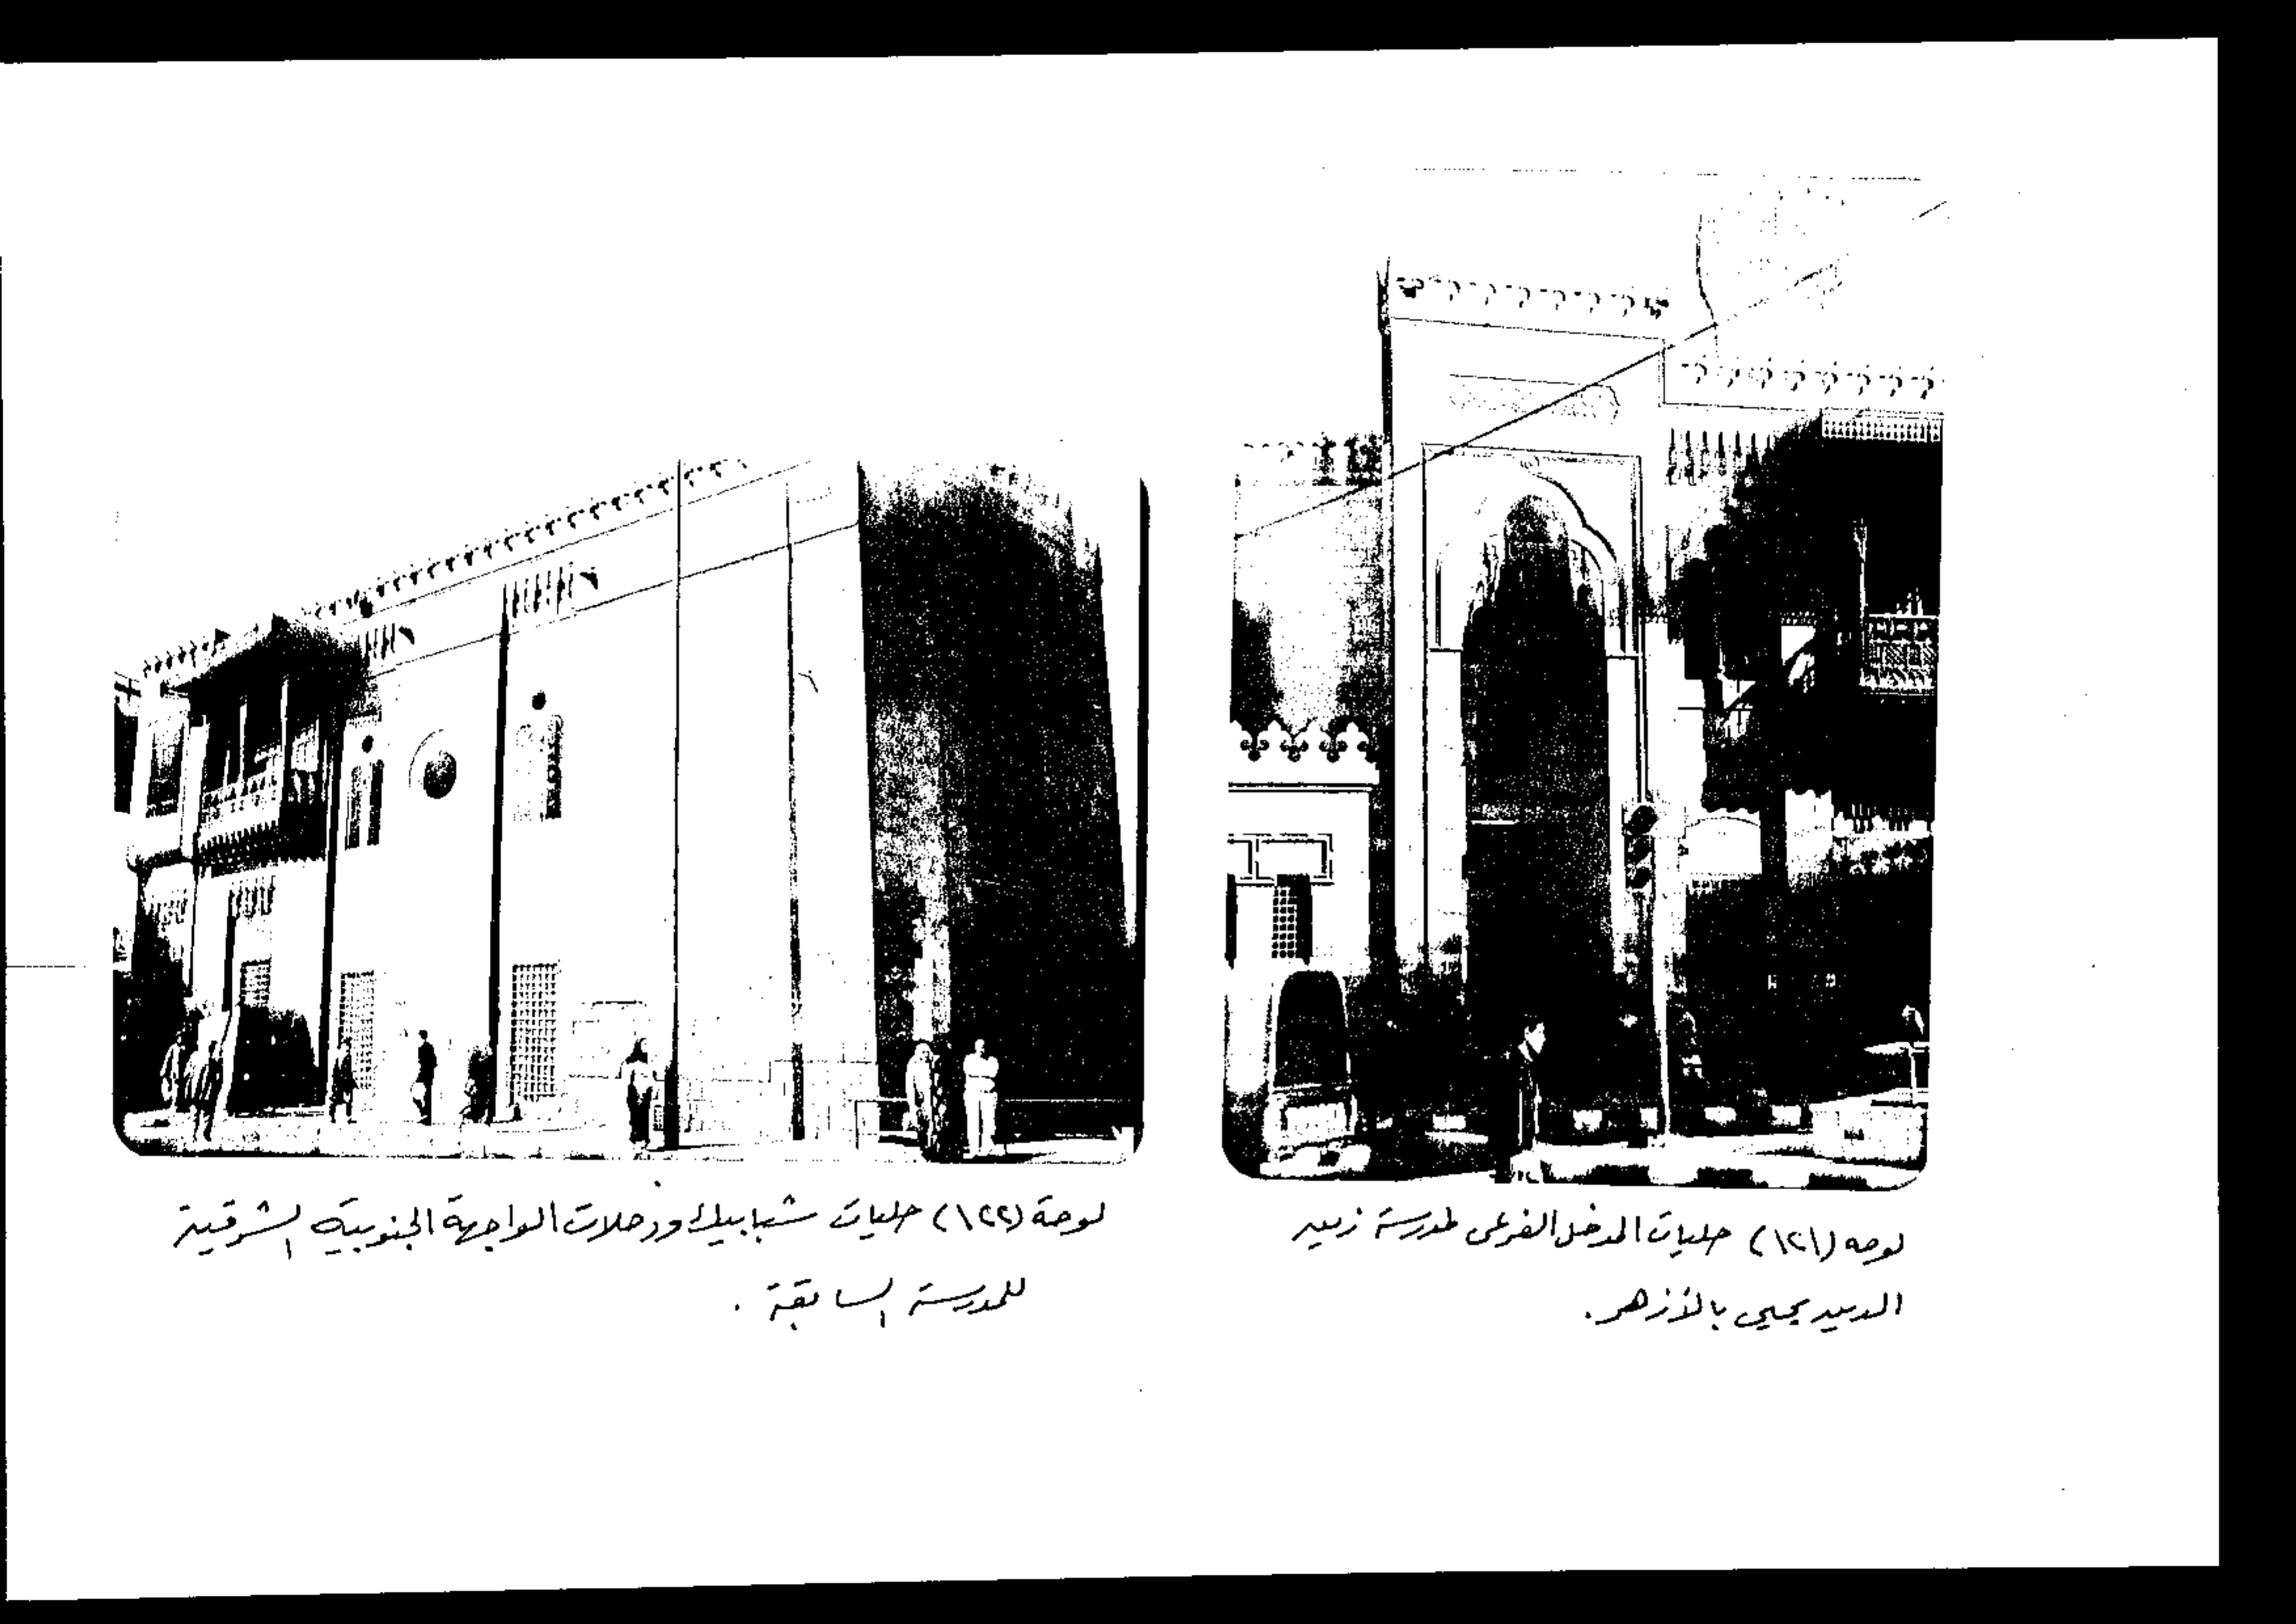 لوحه (١٢١) حليات المدخل الفرعى لمدرسة زين
الدين يحيى بالأزهر.
لوحة (١٢٢) حليات شبابيك ودخلات الواجهة الجنوبية الشرقية
للمدرسة السابقة .